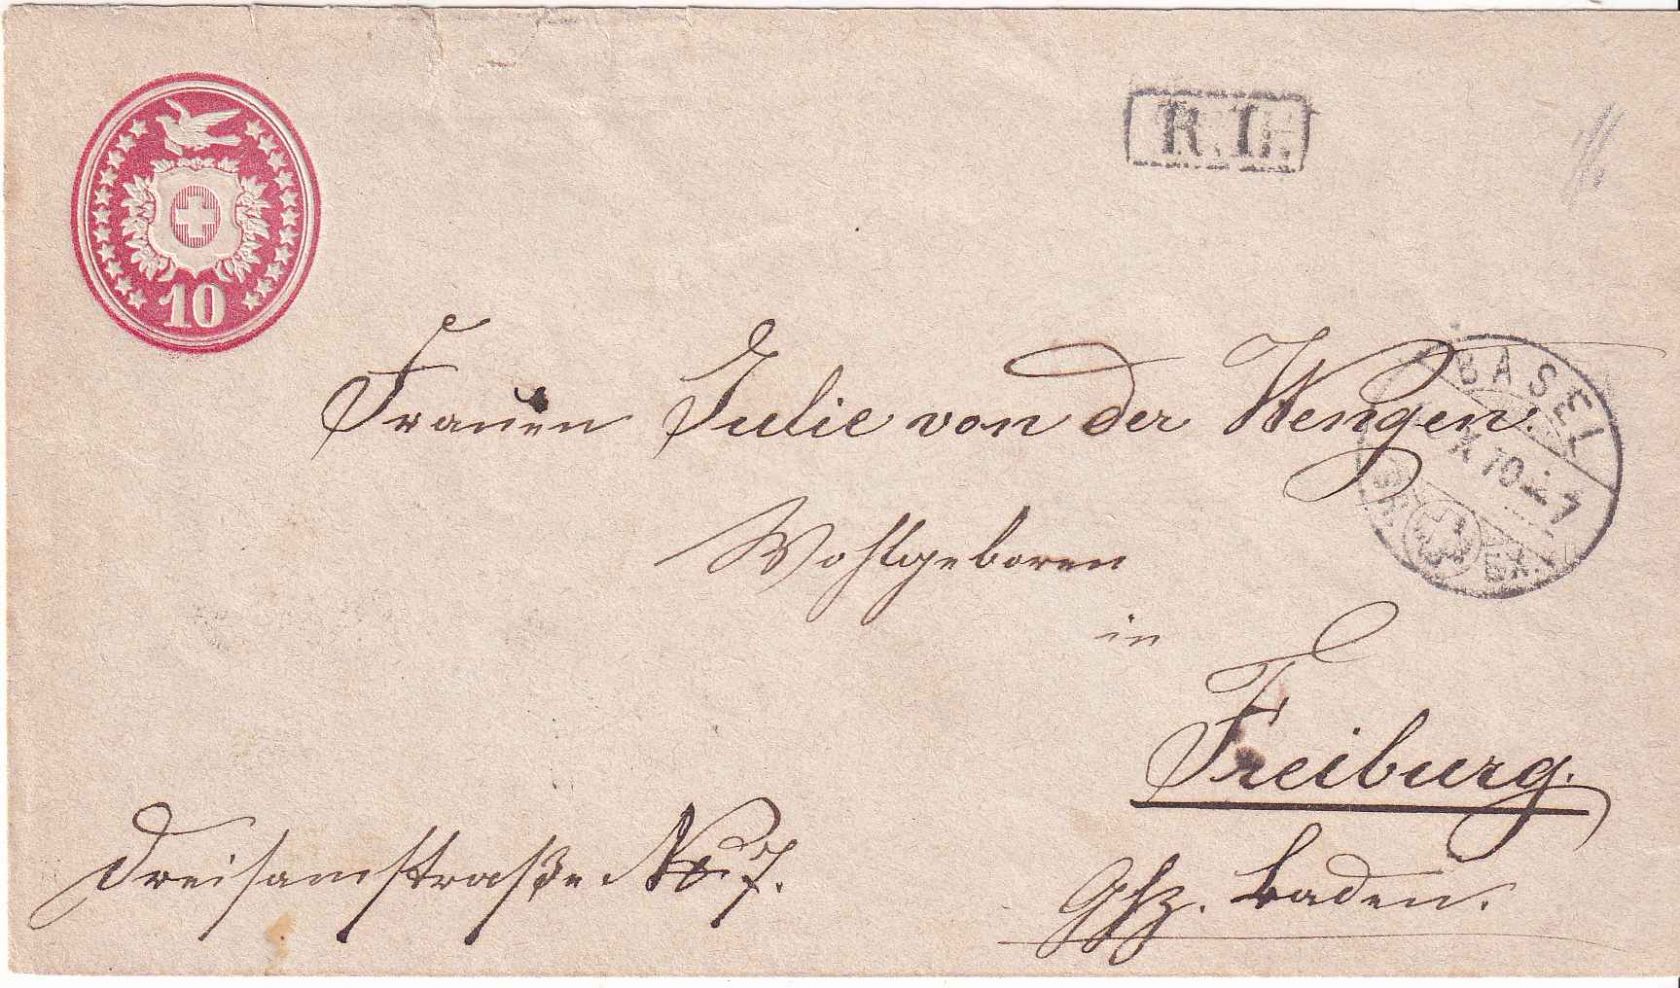 R.L.
10
Frauen Julie von der Wengen.
BASEL
X 70 - 7
BR. EXP.
Wohlgeboren
in
Freiburg.
Dreisamstraße No 7.
Ghz. Baden.